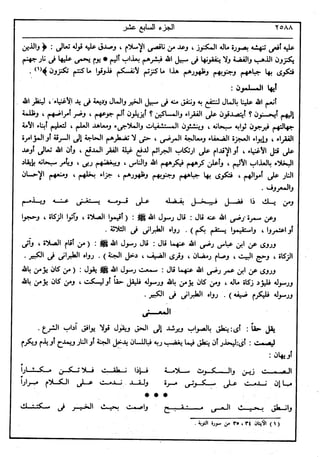 ٢٥٨٨ الجزء السابع عشر
عليه أفعى تنهشه بصورة ماله المكنوز ، وعد من ناقصي الإسلام ، وصدق عليه قوله تعالى : ﴿ والذين
يكنزون الذهب والفضة ولا ينفقونها في سبيل الله فبشرهم بعذاب أليم * يوم يحمى عليها في نار جهنم
فتكوى بها جباههم وجنوبهم وظهورهم هذا ما كنزتم لأنفسكم فذوقوا ما كنتم تكنزون ﴾(١) .
أيها المسلمون :
أنعم الله علينا بالمال لننتفع به وننفق منه في سبيل الخير والمال وديعة في يد الأغنياء ، لينظر الله
إليهم أيحسنون ؟ أيتصدقون على الفقراء والمساكين ؟ أيزيلون ألم جوعهم ، وضر أمراضهم ، وظلمة
جهالتهم فيرجون ثوابه سبحانه ، وينشئون المستشفيات والملاجىء ومعاهد العلم ، لتعليم أبناء الأمة
الفقراء ، وإيواء العجزة الضعفاء ومعالجة المرضى ، حتى لا تضطرهم الحاجة إلى السرقة أو المؤامرة
على قتل الأغنياء ، أو الإقدام على ارتكاب الجرائم لدفع غيلة الفقر المدقع ، وأن الله تعالى أوعد
البخلاء بالعذاب الأليم ، وأعلن كرههم فيكرههم الله والناس ، ويبغضهم ربي ، ويأمر سبحانه بإيقاد
النار على أموالهم ، فتكوى بها جباههم وجنوبهم وظهورهم ، جزاء بخلهم ، ومنعهم الإحسان
والمعروف .
ومن يك ذا فضل فيبخل بفضله على قومه يستغنى عنه ويذمم
وعن سمرة رضي الله عنه قال : قال رسول الله ﷺ : ( أقيموا الصلاة ، وآتوا الزكاة ، وحجوا
واعتمروا ، واستقيموا يستقم بكم ) . رواه الطبراني في الثلاثة .
وروى عن ابن عباس رضي الله عنهما قال : قال رسول الله ﷺ : ( من أقام الصلاة ، وآتى
الزكاة ، وحج البيت ، وصام رمضان ، وقرى الضيف ، دخل الجنة ) . رواه الطبراني في الكبير .
وروى عن ابن عمر رضي الله عنهما قال : سمعت رسول الله ﷺ يقول : ( من كان يؤمن بالله
ورسوله فليؤد زكاة ماله ، ومن كان يؤمن بالله ورسوله فليقل حقاً أو ليسكت ، ومن كان يؤمن بالله
ورسوله فليكرم ضيفه ) . رواه الطبراني في الكبير .
المعنى
يقل حقاً : أي : ينطق بالصواب ويرشد إلى الحق ويقول قولا يوافق آداب الشرع .
ليصمت : أي : ليحذر أن ينطق فيما يغضب ربه فباللسان يدخل الجنة أو النار ويمدح أو يذم ويكرم
أو يهان :
الصمت زين والسكوت سلامة فإذا نطقت فلا تكن مكثاراً
ما إن ندمت على سكوتى مرة ولقد ندمت على الكلام مراراً
* * *
وانطق بحيث العى مستقبح واصمت بحيث الخير فى سكتتك
(١) الآيتان ٣٤، ٣٥ من سورة التوبة .